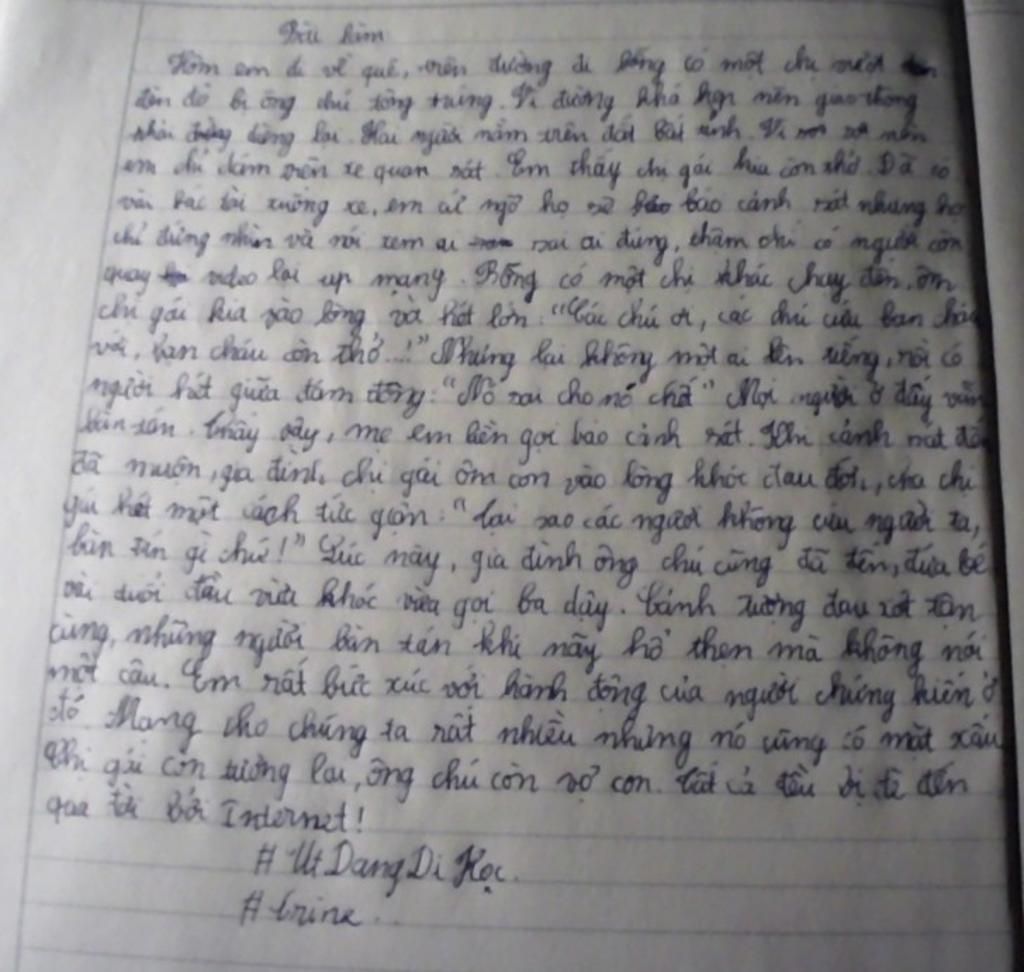 Bài làm
Hôm em đi về quê, trên đường đi bỗng có một chị vượt
đèn đỏ bị ông chú tông trúng. Vì đường khá hẹp nên giao thông
phải dừng lại. Hai người nằm trên đất bất tỉnh. Vì sợ nên
em chỉ dám trên xe quan sát. Em thấy chị gái kia còn thở. Đã có
vài bác tài xuống xe, em cứ ngỡ họ sẽ báo cảnh sát nhưng họ
chỉ đứng nhìn và nói xem ai sai ai đúng, thậm chí có người còn
quay video lại up mạng. Bỗng có một chị khác chạy đến, ôm
chị gái kia vào lòng và hét lớn: "Các chú ơi, các chú cứu bạn cháu
với, bạn cháu còn thở...!" Nhưng lại không một ai lên tiếng, rồi có
người hét giữa đám đông: "Nó sai cho nó chết" Mọi người ở đấy vẫn
bàn tán. Thấy vậy, mẹ em liền gọi báo cảnh sát. Khi cảnh sát đến
đã muộn, gia đình chị gái ôm con vào lòng khóc đau đớn, cha chị
gái hét một cách tức giận: "Tại sao các người không cứu người ta,
bàn tán gì chứ!" Lúc này, gia đình ông chú cũng đã đến, đứa bé
vài tuổi đầu vừa khóc vừa gọi ba dậy. Cảnh tượng đau xót tận
cùng, những người bàn tán khi nãy hổ thẹn mà không nói
một câu. Em rất bức xúc với hành động của người chứng kiến ở
đó. Mạng cho chúng ta rất nhiều nhưng nó cũng có mặt xấu
Chị gái còn tương lai, ông chú còn vợ con. Tất cả đều bị đè đến
qua đời bởi Internet!
# Ut Dang Di Học.
# Crine